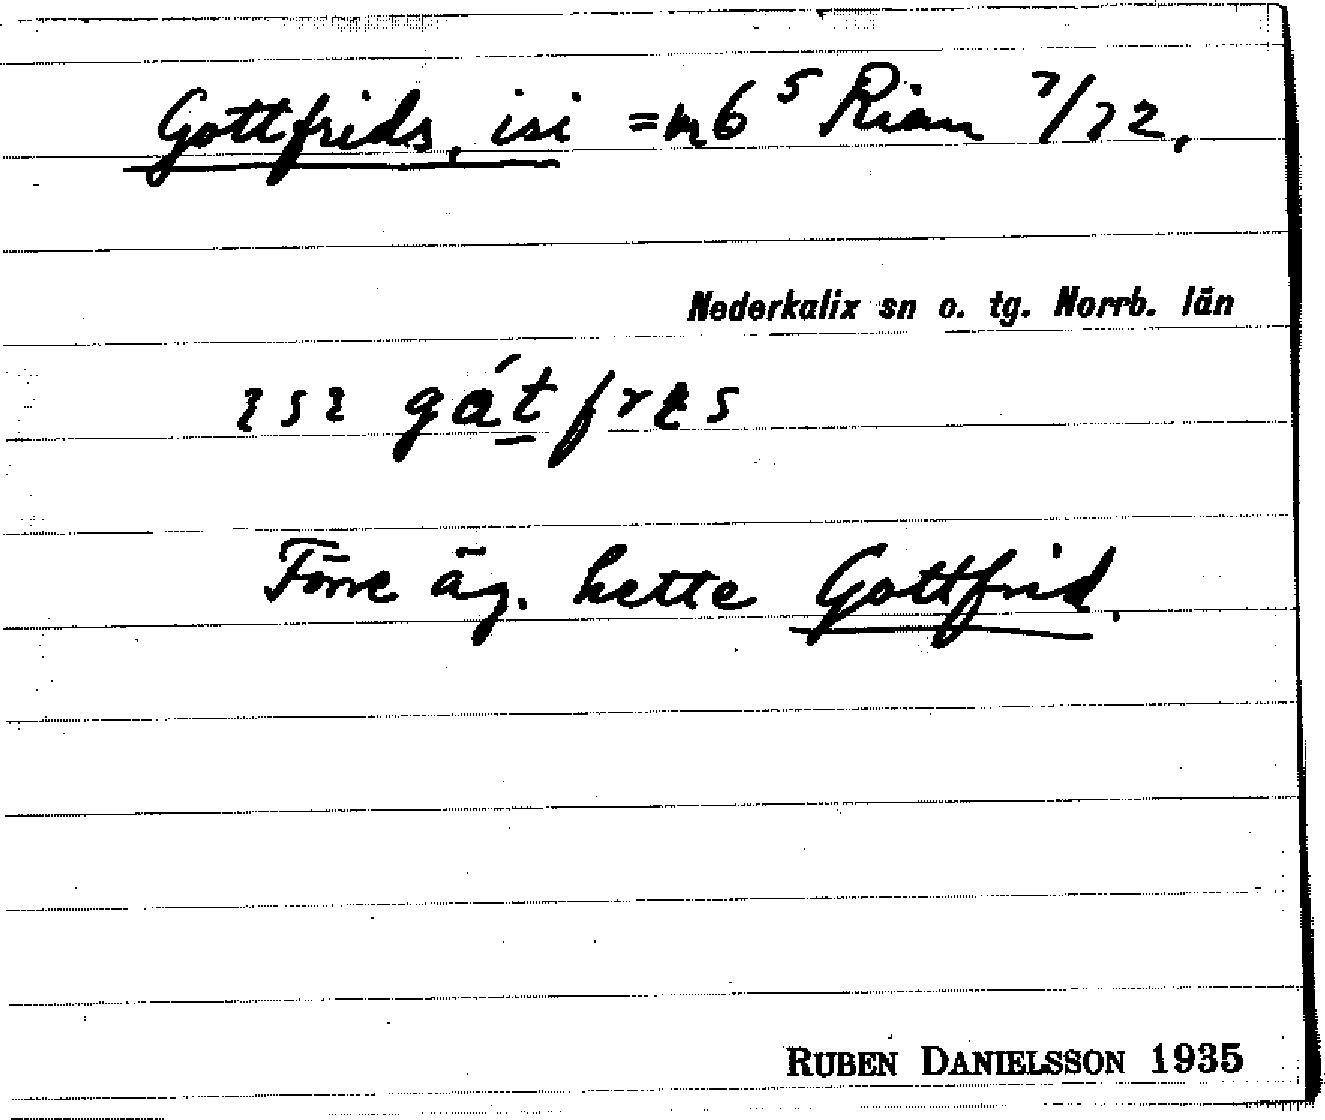 Gottfrids, isi = m 6⁵ Rian 7/72,
Nederkalix sn o. tg. Norrb. län
ısı gátfrɛs
Förre äg. hette Gottfrid.
RUBEN DANIELSSON 1935